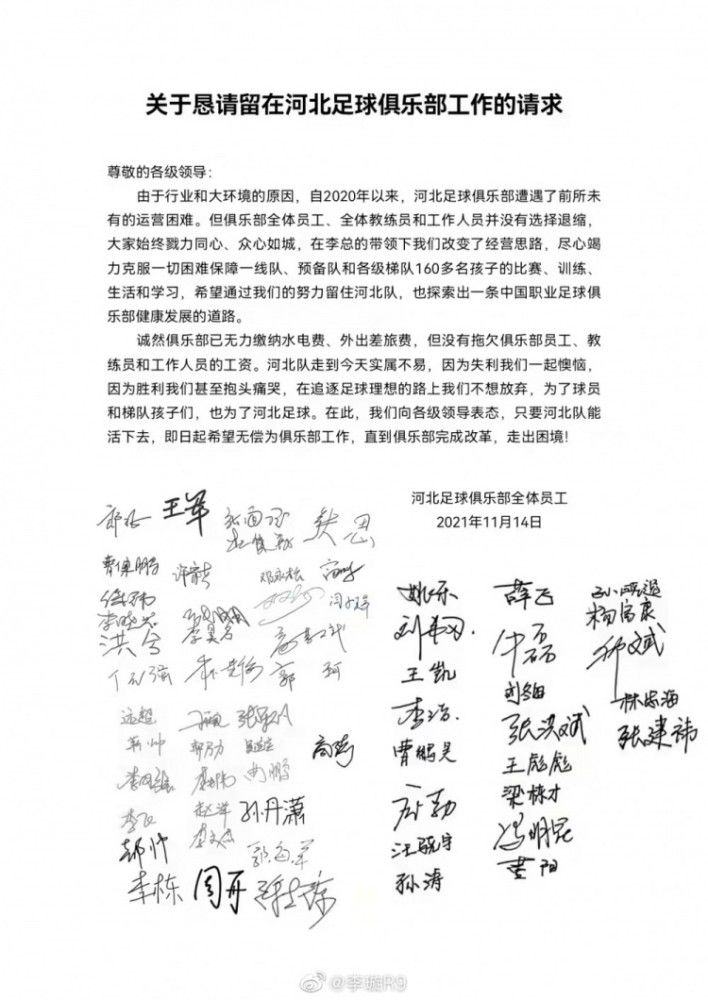 关于恳请留在河北足球俱乐部工作的请求
尊敬的各级领导：
由于行业和大环境的原因，自2020年以来，河北足球俱乐部遭遇了前所未
有的运营困难。但俱乐部全体员工、全体教练员和工作人员并没有选择退缩，
大家始终戮力同心、众心如城，在李总的带领下我们改变了经营思路，尽心竭
力克服一切困难保障一线队、预备队和各级梯队160多名孩子的比赛、训练、
生活和学习，希望通过我们的努力留住河北队，也探索出一条中国职业足球俱
乐部健康发展的道路。
诚然俱乐部已无力缴纳水电费、外出差旅费，但没有拖欠俱乐部员工、教
练员和工作人员的工资。河北队走到今天实属不易，因为失利我们一起懊恼，
因为胜利我们甚至抱头痛哭，在追逐足球理想的路上我们不想放弃，为了球员
和梯队孩子们，也为了河北足球。在此，我们向各级领导表态，只要河北队能
活下去，即日起希望无偿为俱乐部工作，直到俱乐部完成改革，走出困境！
河北足球俱乐部全体员工
2021年11月14日
王军
曹保鹏
洪兮
郭 珂
远超
孙丹潇
李栋 周开
姚乐
王凯
李浩
曹鹏昊
汪晓宇
孙涛
薛飞
牛磊
张洪斌
王彪彪
梁栋才
冯明昆
黄阳
杨富康
林志海
张建祎
@李璇R9